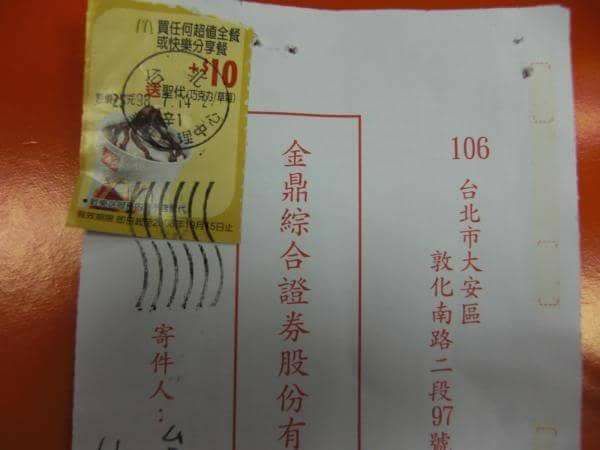 買任何超值全餐
或快樂分享餐
+$10
送聖代(巧克力/草莓)
106
台北市大安區
敦化南路二段97號
金鼎綜合證券股份有
寄件人：